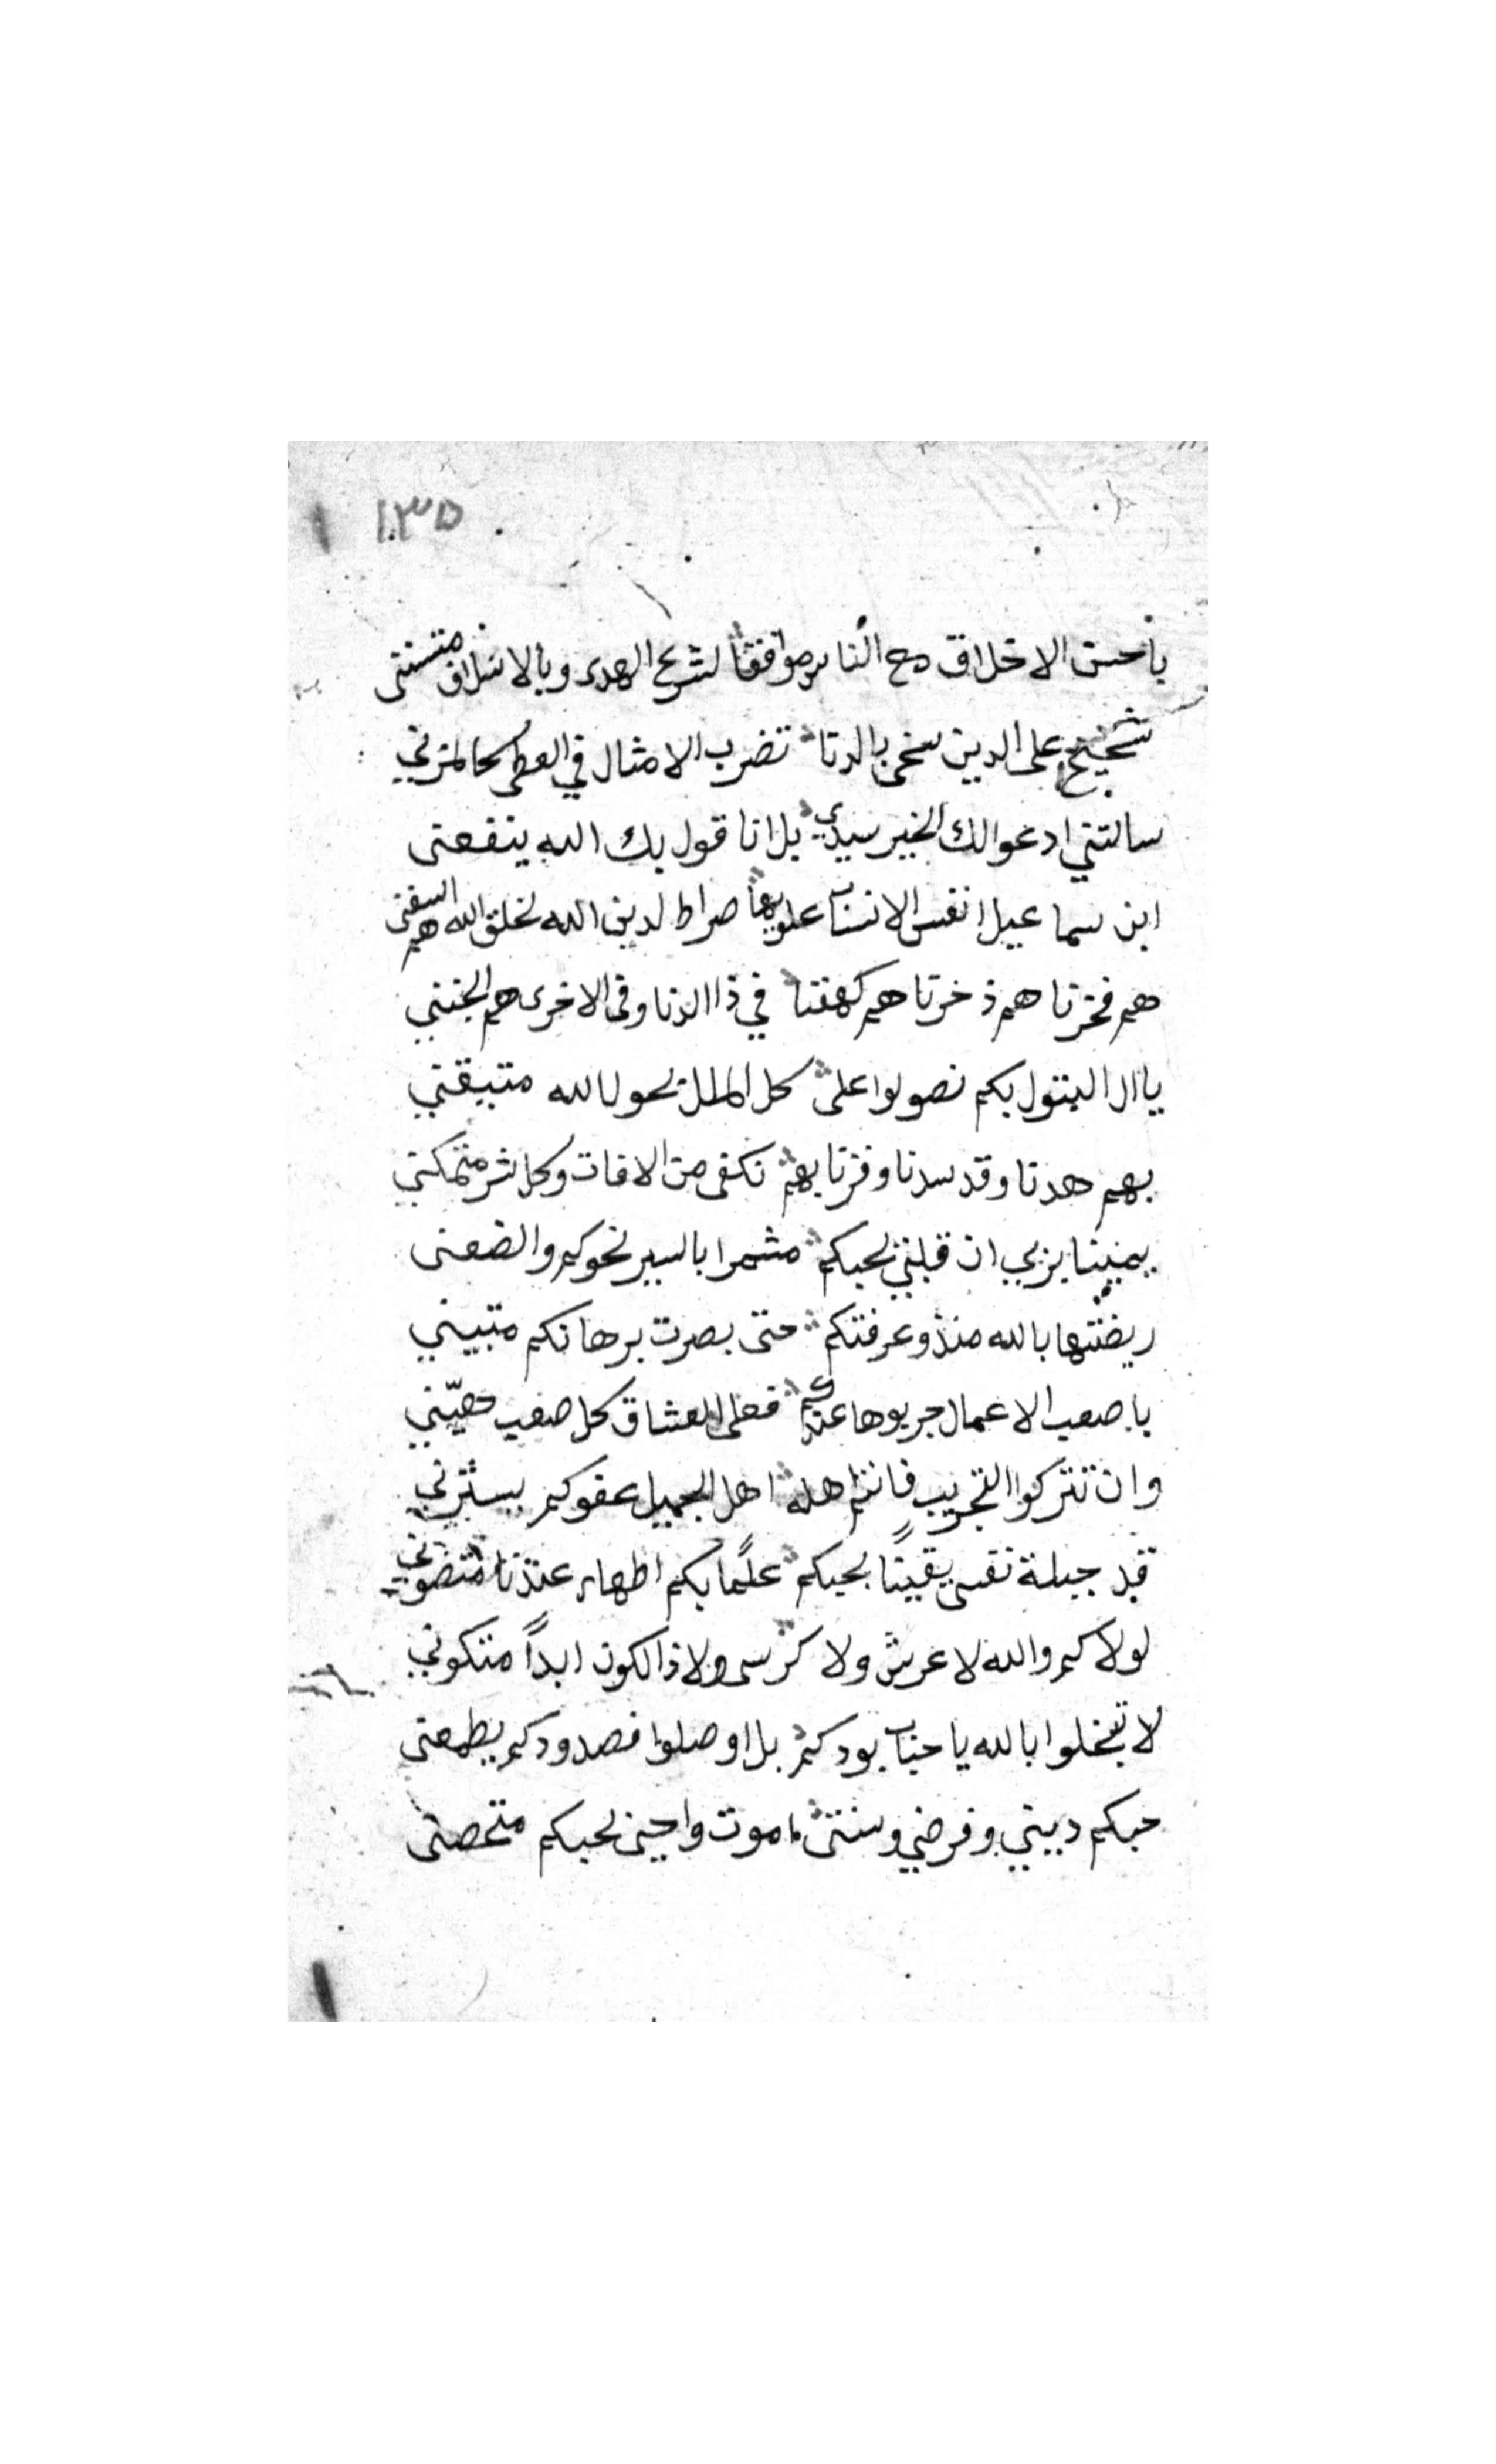 ١٠٣٥
باحسن الاخلاق مع الناس موافقا لشرع الهدى وبالاسلاف متسنني
شحيح على الدين سخي بالدنا تضرب الامثال في العطى كالمزني
سالتني ادعوا لك الخير سيدي بل انا قول بك الله ينفعني
ابن سما عيل انفس الانساب علويها صراط لدين الله لخلق الله هم السفني
هم فخرنا هم ذخرنا هم كهفنا في ذا الدنا وفي الاخرى هم الجنني
يا ال البتول بكم نصولوا على كل الملل بحول الله متيقني
بهم هدنا وقد سدنا وفزنا بهم نكفى من الافات وكل شر متمكني
يميننا بربي ان قبلتني لحبكم مشمرا بالسير نحوكم والضعنى
ريضتها بالله منذ وعرفتكم حتى بصرت برهانكم متبيني
با صعب الاعمال جربوها عندكم فعلى العشاق كل صعب هيّني
وان تتركوا التجريب فانتم اهله اهل الجميل عفوكم يسترني
قد جبلة نفسي يقينًا بحبكم علمًا بكم اطهار عندنا
لولاكم والله لا عرش ولا كرسى ولا ذا الكون ابدًا متكوني
لا تبخلوا بالله يا حباب بودكم بل اوصلوا فصدودكم يطمعني
حبكم ديني وفرضي وسنتي اموت واحيى لحبكم متحصني